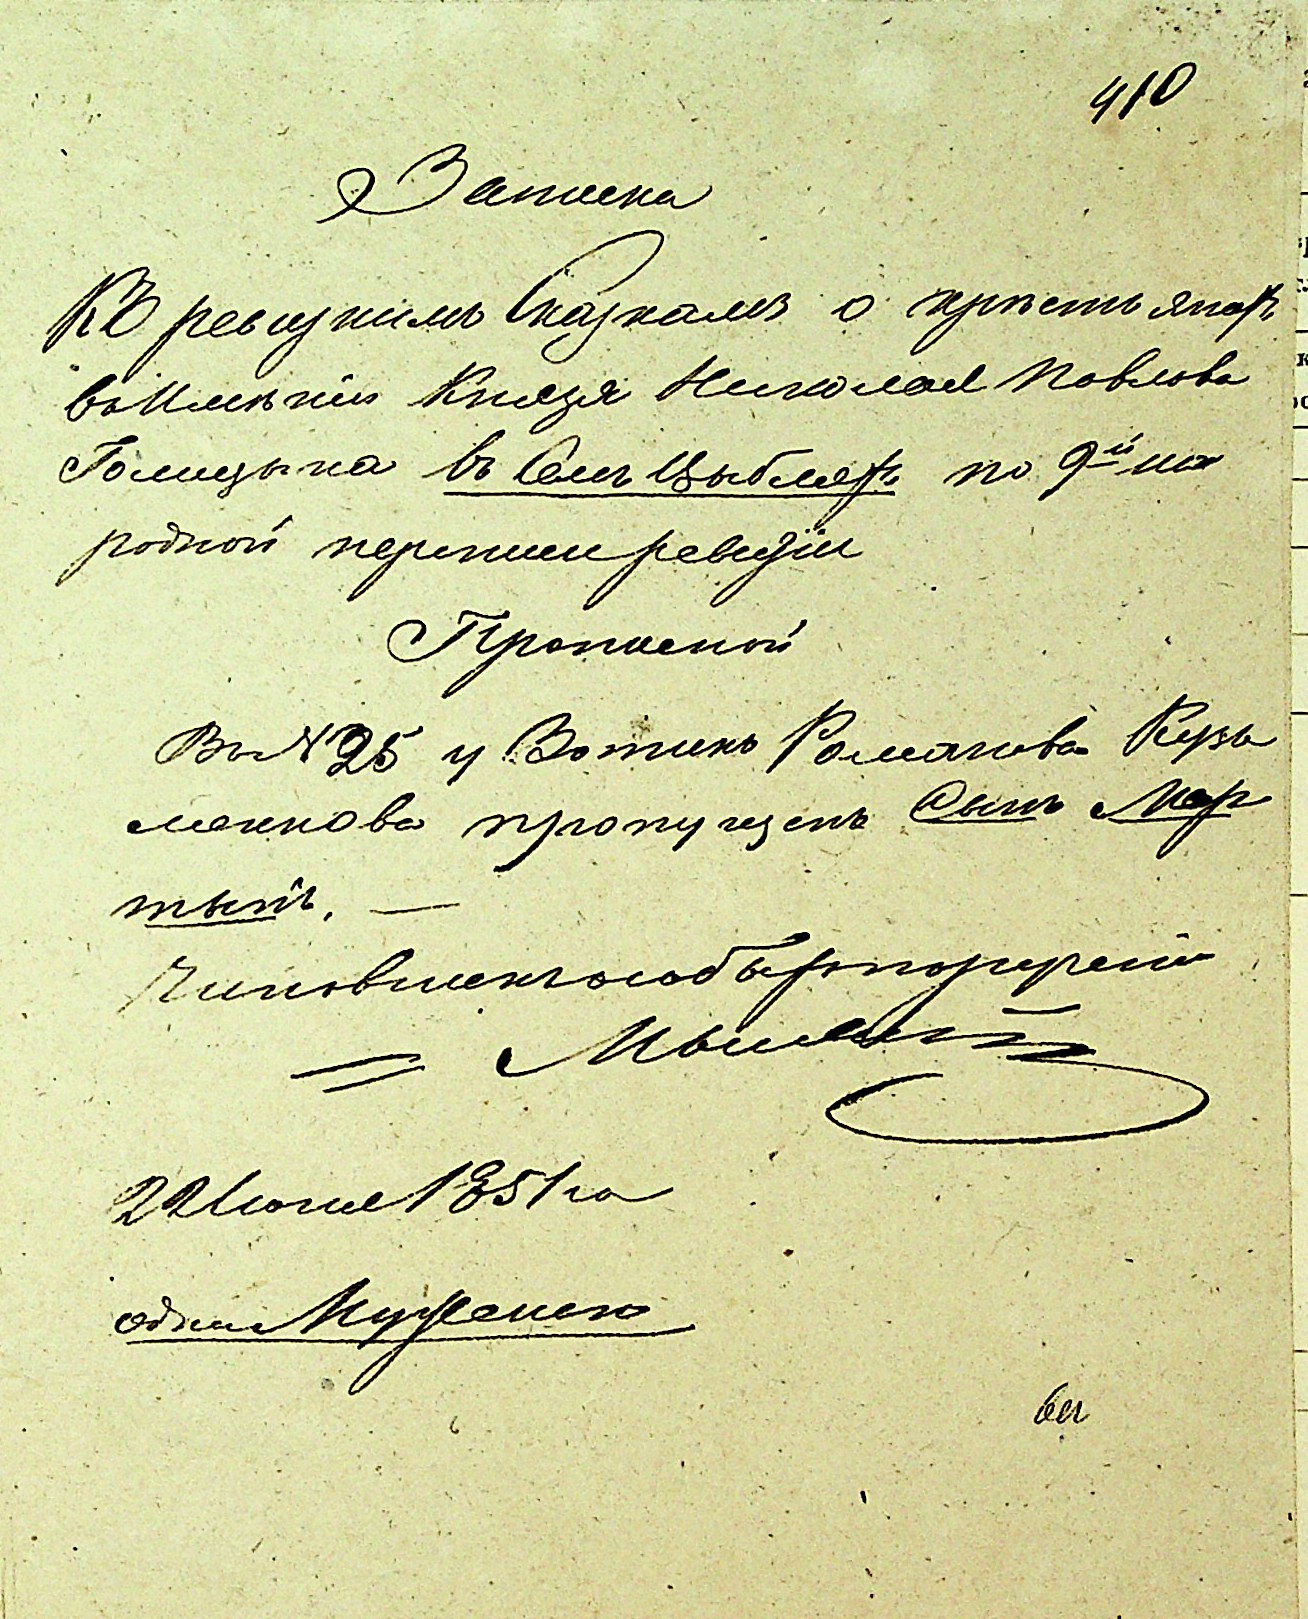 410
Записка
Къ ревизкимъ Сказкамъ о крестьянахъ
въ Имѣнiи Князя Николая Павлова
Голицына въ Семъ Цыбляхъ по 9й на
родной переписи ревизiи
Прописной
Въ № 25 у Зотика Романова Кузь
менкова пропущенъ Сынъ Мар
тынъ. —
Чиновникъ особыхъ порученiй
22 Июня 1851 го
один Мужеска